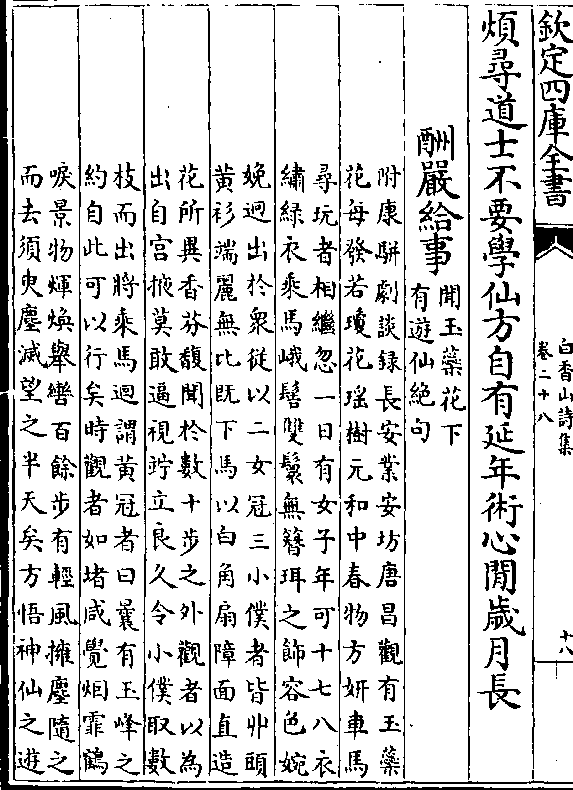 欽定四庫全書
白香山詩集
卷二十八
十八
煩尋道士不要學仙方自有延年術心閒歲月長
酬嚴給事
聞玉蘂花下
有遊仙絶句
附康駢劇談録長安業安坊唐昌觀有玉蘂
花每發若瓊花瑶樹元和中春物方妍車馬
尋玩者相繼忽一日有女子年可十七八衣
繡緑衣乘馬峨髻雙鬟無簪珥之飾容色婉
娩迥出於衆從以二女冠三小僕者皆丱頭
黄衫端麗無比既下馬以白角扇障面直造
花所異香芬馥聞於數十步之外觀者以為
出自宫掖莫敢逼視竚立良久令小僕取數
枝而出將乘馬迴謂黄冠者曰曩有玉峰之
約自此可以行矣時觀者如堵咸覺烟霏鶴
唳景物輝煥舉轡百餘步有輕風擁塵隨之
而去須臾塵滅望之半天矣方悟神仙之遊